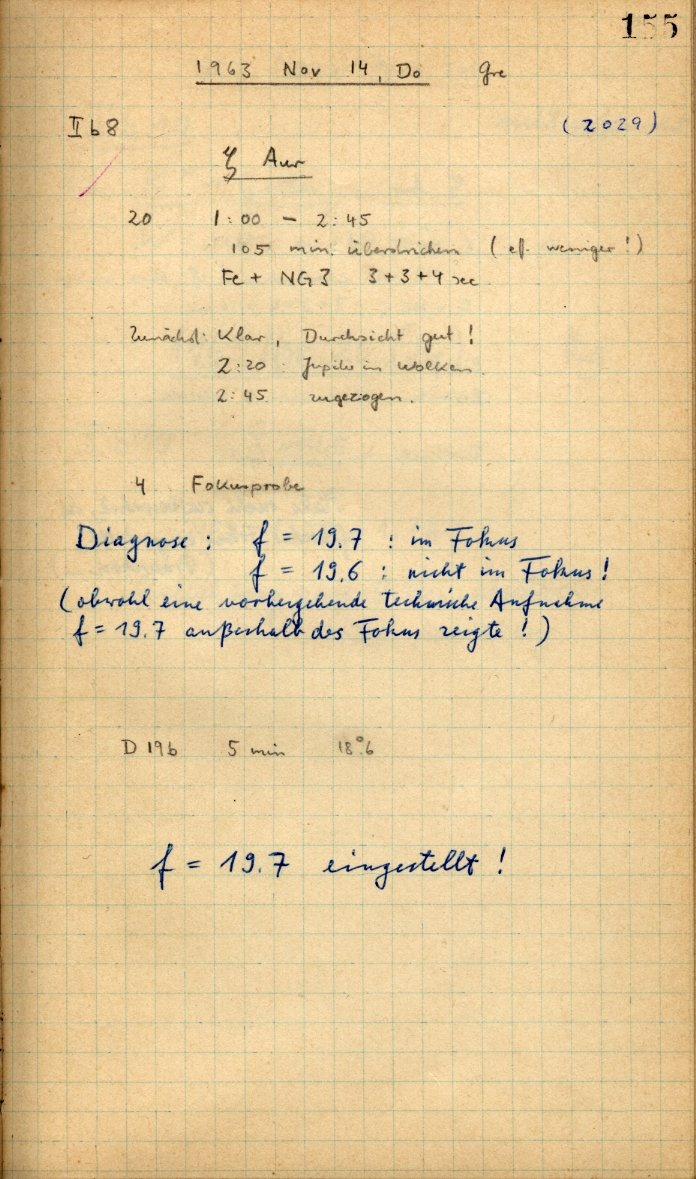 155
1963 Nov 14, Do Gre
II b 8 (2029)
ζ Aur
20 1:00 – 2:45
105 min. überstrichen (eff. weniger!)
Fe + NG3 3+3+4 sec
Zunächst: Klar, Durchsicht gut!
2:20 : Jupiter in Wolken
2:45 zugezogen.
4 Fokusprobe
Diagnose: f = 19.7 : im Fokus
f = 19.6 : nicht im Fokus!
(obwohl eine vorhergehende technische Aufnahme
f = 19.7 außerhalb des Fokus zeigte!)
D 19b 5 min 18°.6
f = 19.7 eingestellt!